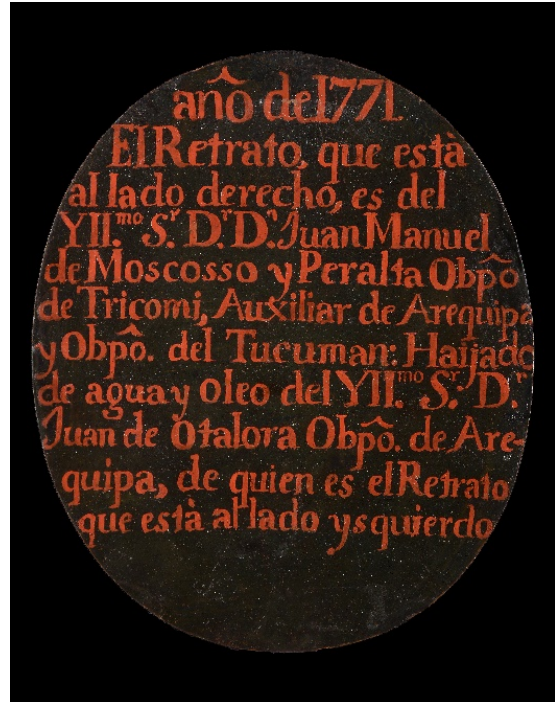 año de 1771.
El Retrato, que està
al lado derecho, es del
Yll.ᵐᵒ S.ʳ D.ʳ D.ⁿ Juan Manuel
de Moscosso y Peralta Obpô
de Tricomi, Auxiliar de Arequipa
y Obpô. del Tucuman: Haijado
de agua y oleo del Yll.ᵐᵒ S.ʳ D.ʳ
Juan de Otalora Obpô. de Are-
quipa, de quien es el Retrato
que està al lado ysquierdo